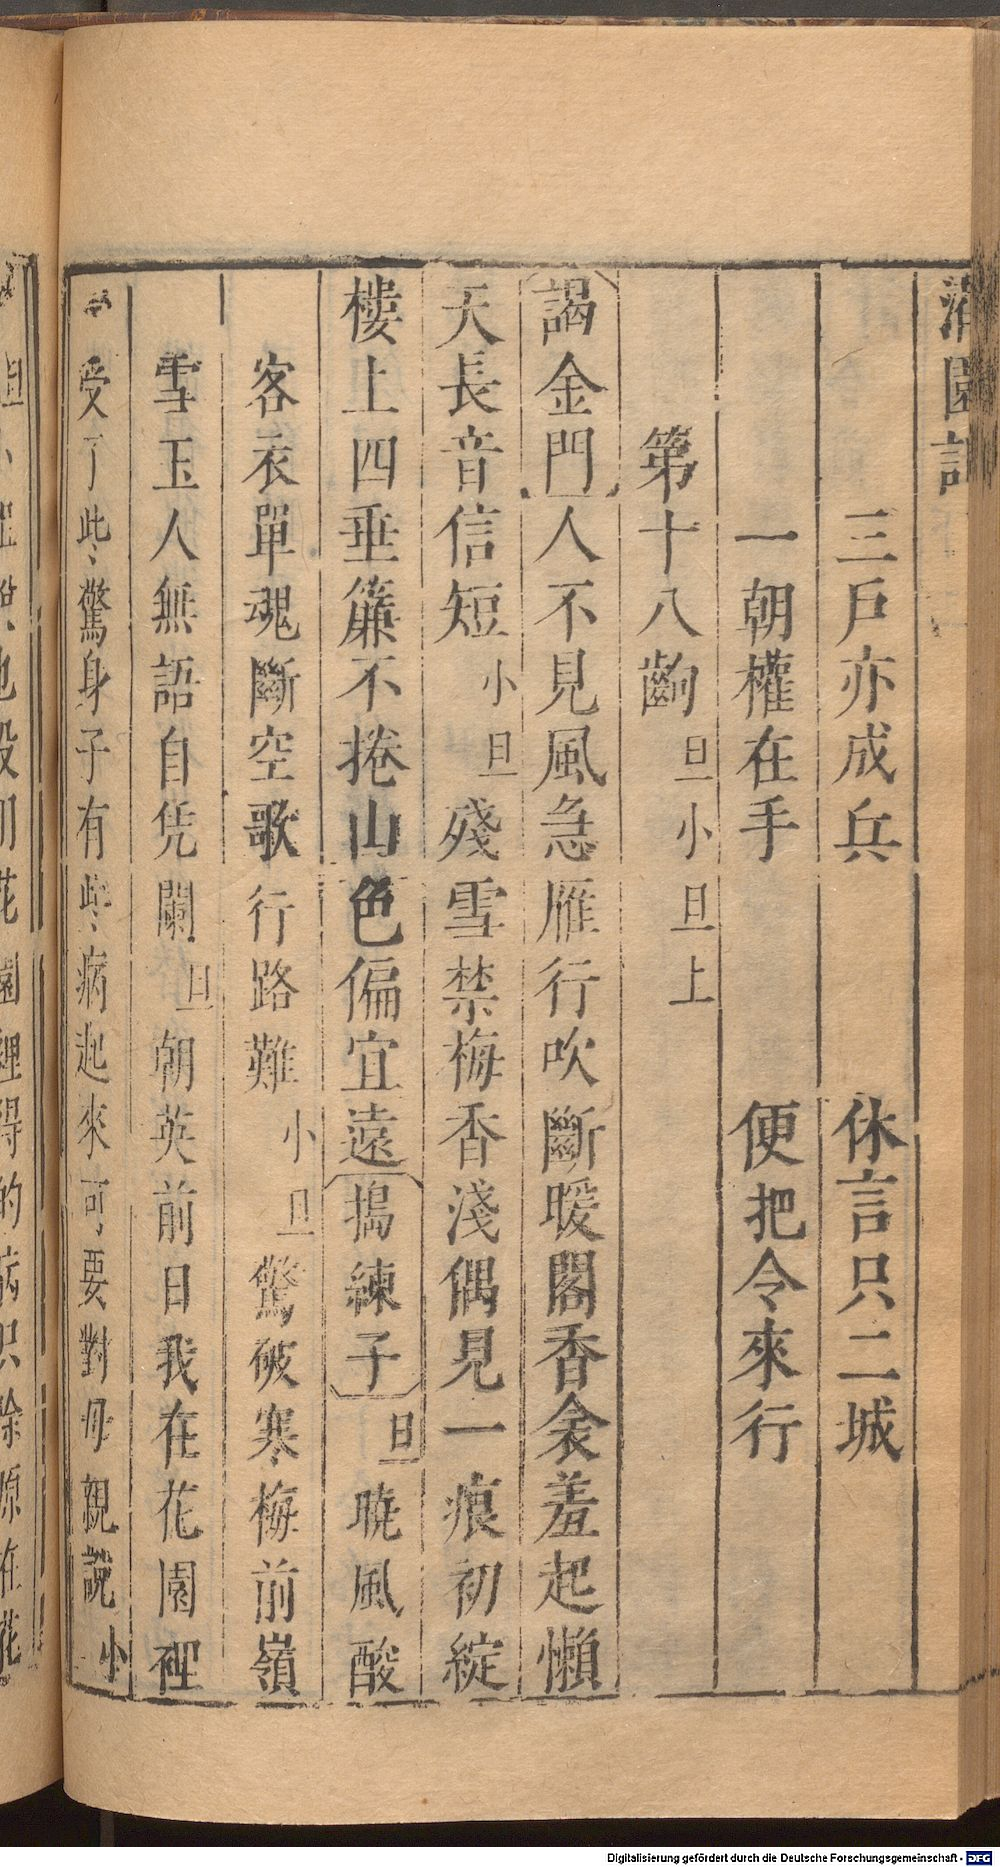 園記
三戶亦成兵　休言只二城
一朝權在手　便把令來行
第十八齣　旦小旦上
謁金門人不見風急雁行吹斷暖閣香衾羞起懶
天長音信短小旦殘雪禁梅香淺偶見一痕初綻
樓上四垂簾不捲山色偏宜遠搗練子旦曉風酸
客衣單魂斷空歌行路難小旦驚破寒梅前嶺
雪玉人無語自凭闌旦朝英前日我在花園裡
受了些驚身子有些病起來可要對母親說小
旦小姐說也沒用花園裡得的病只除原在花
Digitalisierung gefördert durch die Deutsche Forschungsgemeinschaft - DFG